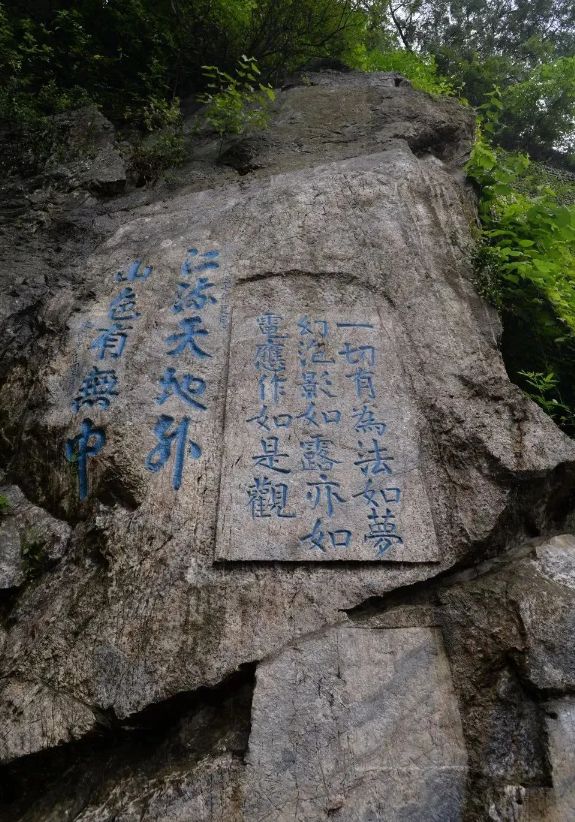 一切有為法如夢
幻泡影如露亦如
電應作如是觀
江流天地外
山色有無中